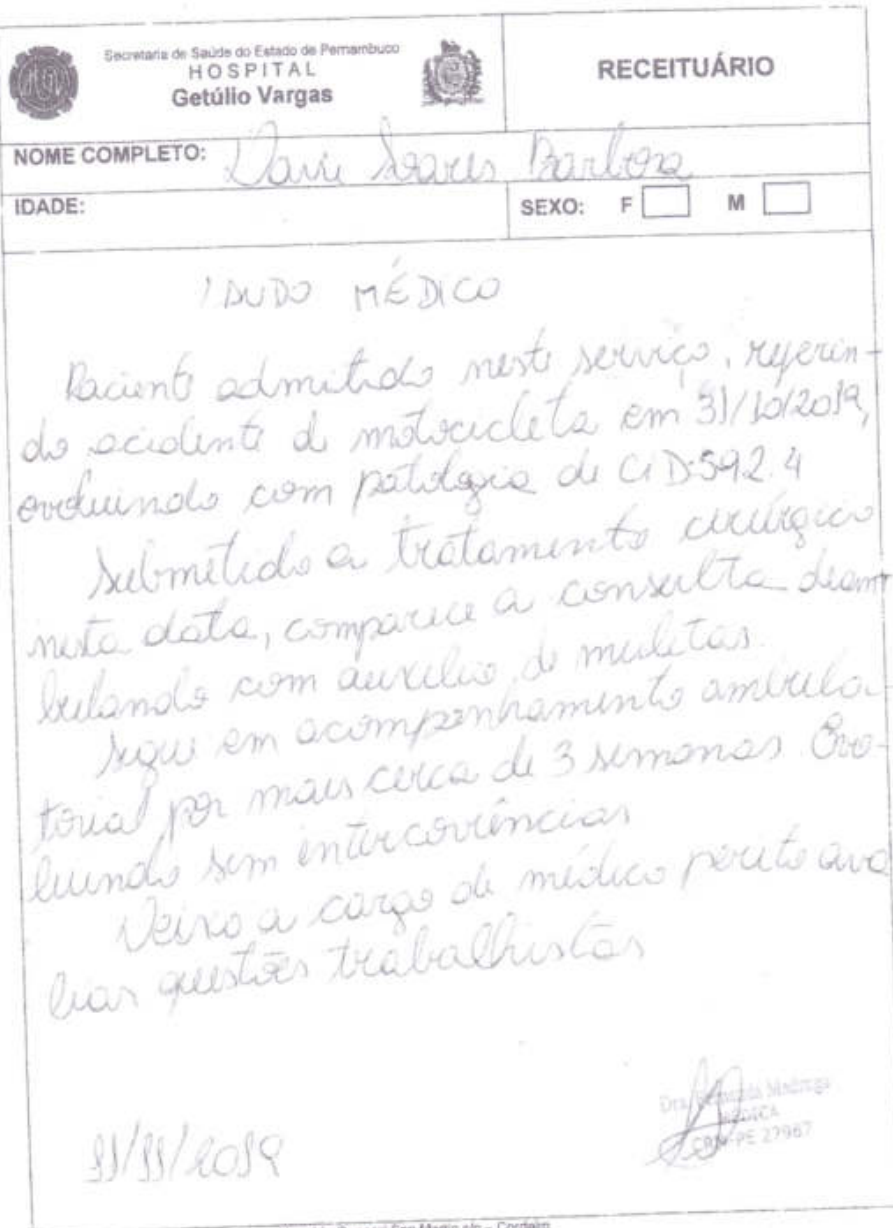 Secretaria de Saúde do Estado de Pernambuco
HOSPITAL
Getúlio Vargas
RECEITUÁRIO
NOME COMPLETO: Davi Soares Barbosa
IDADE:
SEXO: F M
LAUDO MÉDICO
Paciente admitido neste serviço, referin-
do acidente de motocicleta em 31/10/2019,
evoluindo com patologia de CID: S92.4
Submetido a tratamento cirúrgico
nesta data, comparece a consulta deam
bulando com auxilio de muletas.
Segue em acompanhamento ambula-
torial por mais cerca de 3 semanas. Evo-
luindo sem intercorrências
Deixo a cargo de médico perito ava
liar questões trabalhistas
11/11/2019
Dra. Madruga
MÉDICA
CRM-PE 27967
Cordeiro